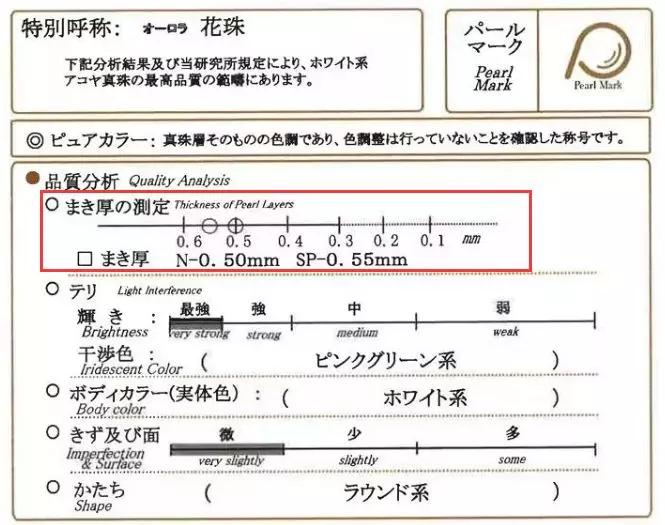 特別呼称： オーロラ 花珠
下記分析結果及び当研究所規定により、ホワイト系
アコヤ真珠の最高品質の範疇にあります。
パール
マーク
Pearl
Mark
Pearl Mark
◎ ピュアカラー： 真珠層そのものの色調であり、色調整は行っていないことを確認した称号です。
品質分析 Quality Analysis
まき厚の測定 Thickness of Pearl Layers
0.6 0.5 0.4 0.3 0.2 0.1 mm
□ まき厚 N-0.50mm SP-0.55mm
テリ Light Interference
最強 強 中 弱
輝き：
Brightness very strong strong medium weak
干渉色： ( ピンクグリーン系 )
Iridescent Color
ボディカラー(実体色) ： ( ホワイト系 )
Body color
きず及び面 微 少 多
Imperfection & Surface very slightly slightly some
かたち ( ラウンド系 )
Shape